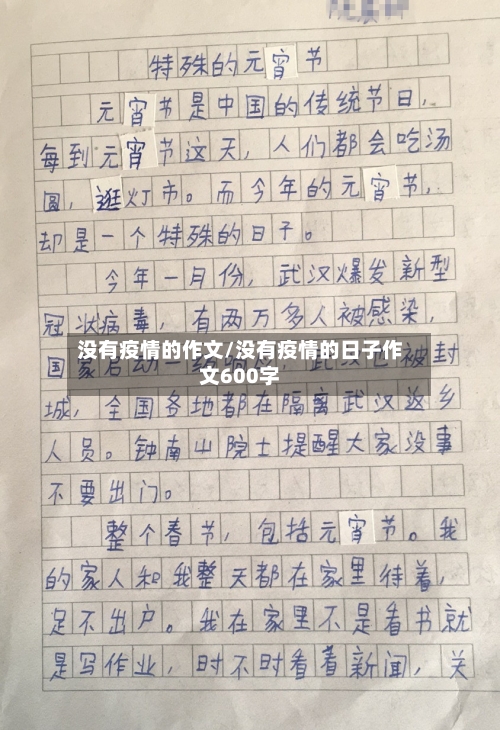 特殊的元宵节
元宵节是中国的传统节日，
每到元宵节这天，人们都会吃汤
圆，逛灯市。而今年的元宵节，
却是一个特殊的日子。
今年一月份，武汉爆发新型
冠状病毒，有两万多人被感染，
没有疫情的作文/没有疫情的日子作
文600字
国家启动一级响应，武汉已被封
城，全国各地都在隔离武汉返乡
人员。钟南山院士提醒大家没事
不要出门。
整个春节，包括元宵节。我
的家人和我整天都在家里待着，
足不出户。我在家里不是看书就
是写作业，时不时看看新闻，关